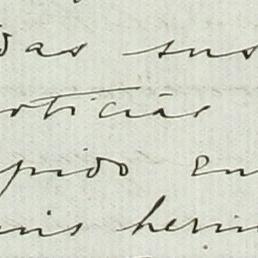 das sus
noticias
pido en
mis herm